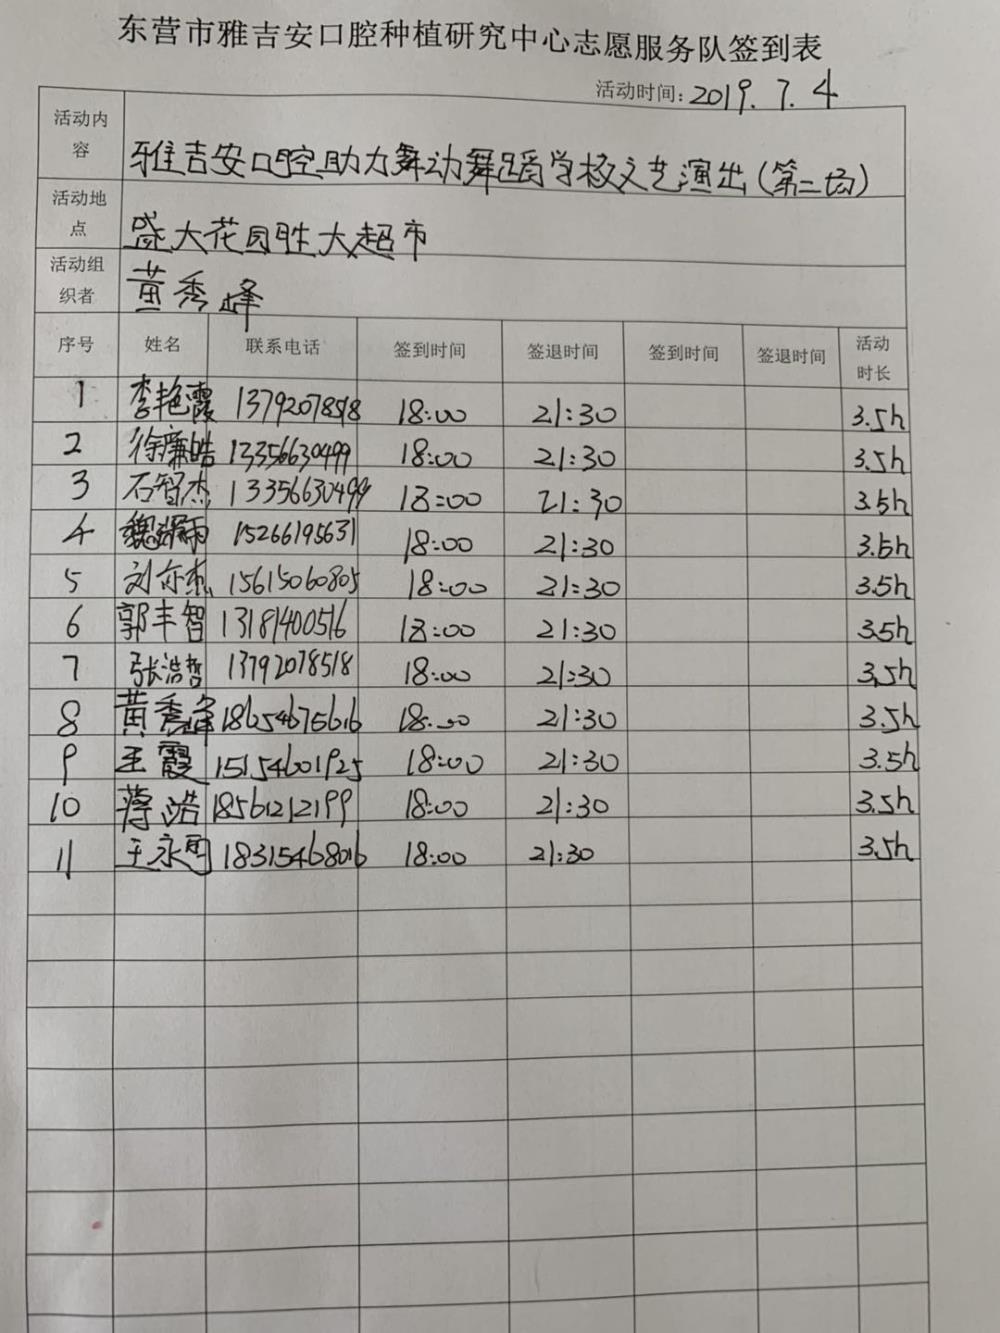 东营市雅吉安口腔种植研究中心志愿服务队签到表
活动时间：2019.7.4
活动内容 雅吉安口腔助力舞动舞蹈学校文艺演出(第二场)
活动地点 盛大花园胜大超市
活动组织者 黄秀峰
序号 姓名 联系电话 签到时间 签退时间 签到时间 签退时间 活动时长
1 李艳霞 13792078518 18:00 21:30 3.5h
2 徐廉皓 13356630499 18:00 21:30 3.5h
3 石智杰 13356630499 18:00 21:30 3.5h
4 15266195631 18:00 21:30 3.5h
5 刘亦杰 15615060805 18:00 21:30 3.5h
6 郭丰智 13181400516 18:00 21:30 3.5h
7 张浩哲 13792078518 18:00 21:30 3.5h
8 黄秀峰 18654675616 18:00 21:30 3.5h
9 王霞 15154601925 18:00 21:30 3.5h
10 蒋浩 18561212199 18:00 21:30 3.5h
11 王永 18315468016 18:00 21:30 3.5h